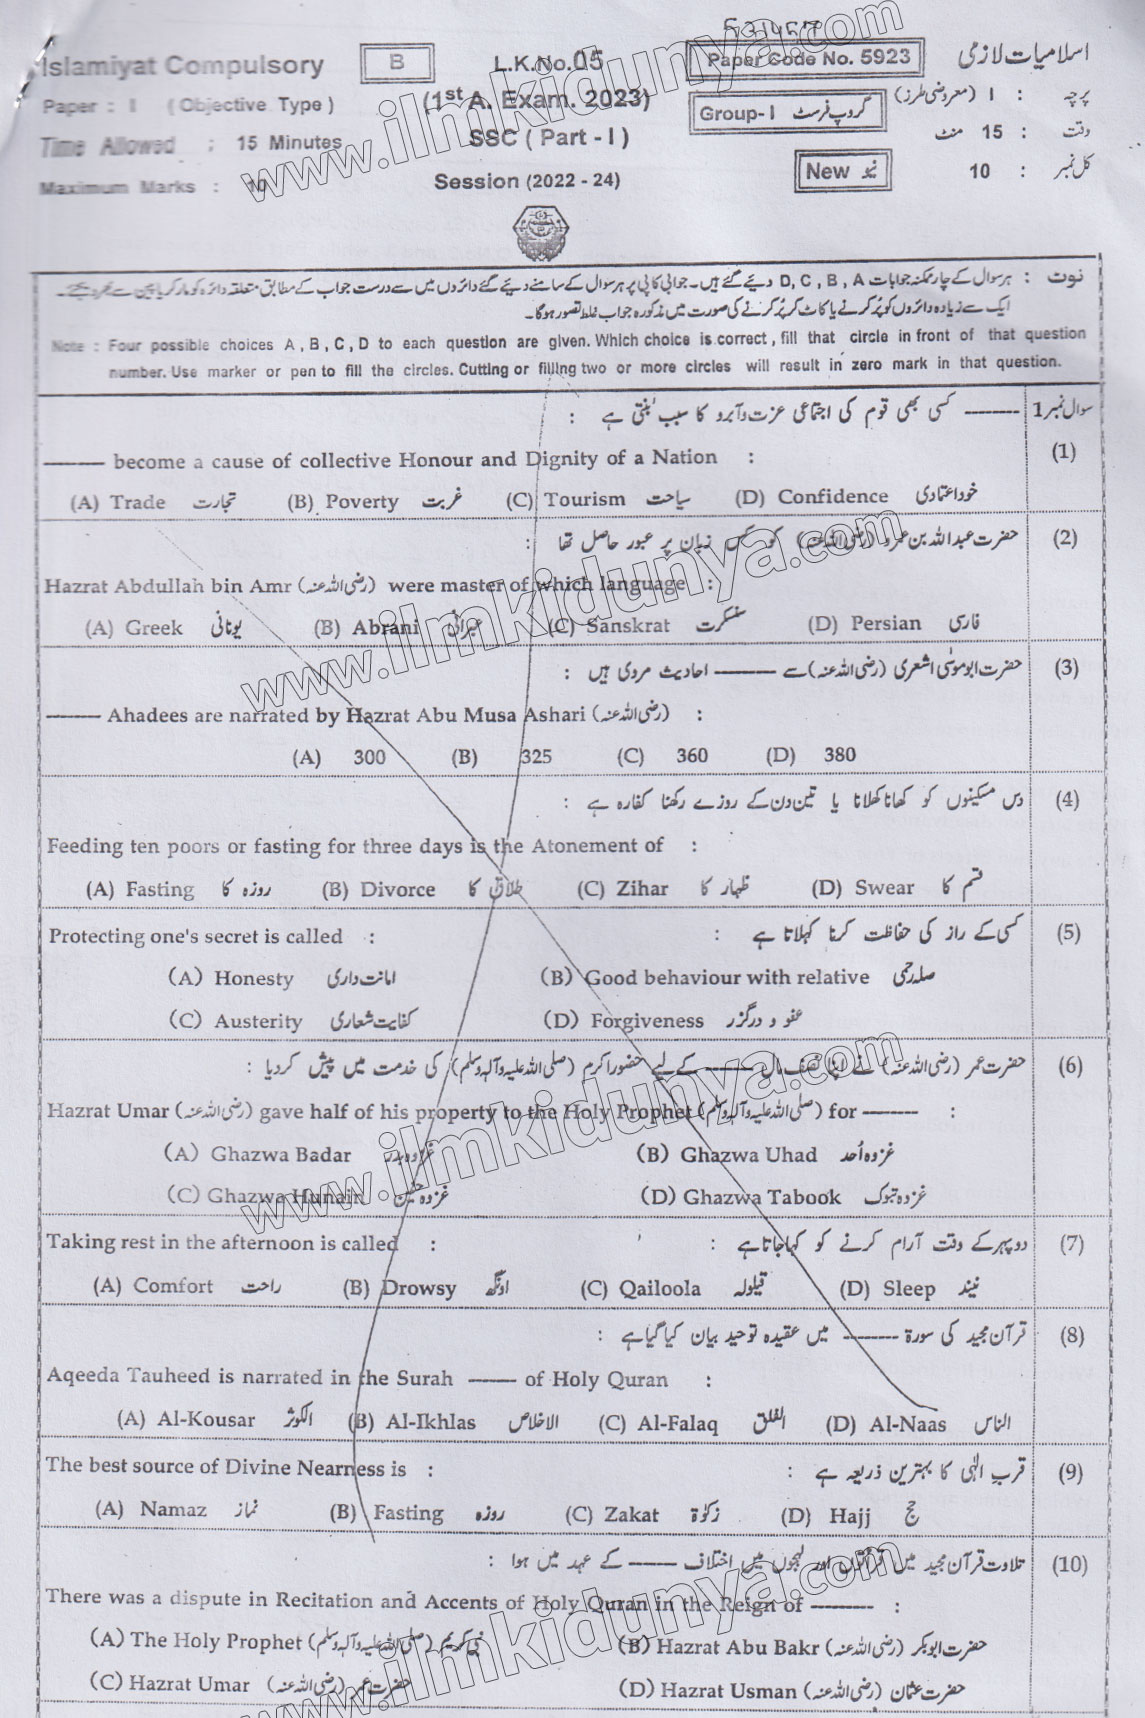 531457
Islamiyat Compulsory
B
L.K.No.05
Paper Code No. 5923
اسلامیات لازمی
Paper : I ( Objective Type )
(1st A. Exam. 2023)
Group-I گروپ فرسٹ
پرچہ : I (معروضی طرز)
Time Allowed : 15 Minutes
SSC ( Part - I )
وقت : 15 منٹ
Maximum Marks : 10
Session (2022 - 24)
New نیو
کل نمبر : 10
نوٹ : ہر سوال کے چار ممکنہ جوابات D, C, B, A دیئے گئے ہیں۔ جوابی کاپی پر ہر سوال کے سامنے دیئے گئے دائروں میں سے درست جواب کے مطابق متعلقہ دائرہ کو مارکر یا پین سے بھر دیجئے۔
ایک سے زیادہ دائروں کو پُر کرنے یا کاٹ کر پُر کرنے کی صورت میں مذکورہ جواب غلط تصور ہوگا۔
Note : Four possible choices A , B , C , D to each question are given. Which choice is correct , fill that circle in front of that question
number. Use marker or pen to fill the circles. Cutting or filling two or more circles will result in zero mark in that question.
سوال نمبر 1 -------- کسی بھی قوم کی اجتماعی عزت و آبرو کا سبب بنتی ہے :
(1)
-------- become a cause of collective Honour and Dignity of a Nation :
(A) Trade تجارت (B) Poverty غربت (C) Tourism سیاحت (D) Confidence خود اعتمادی
(2) حضرت عبداللہ بن عمرو (رضی اللہ عنہ) کو کس زبان پر عبور حاصل تھا :
Hazrat Abdullah bin Amr (رضی اللہ عنہ) were master of which language :
(A) Greek یونانی (B) Abrani عبرانی (C) Sanskrat سنسکرت (D) Persian فارسی
(3) حضرت ابو موسٰی اشعری (رضی اللہ عنہ) سے -------- احادیث مروی ہیں :
-------- Ahadees are narrated by Hazrat Abu Musa Ashari (رضی اللہ عنہ) :
(A) 300 (B) 325 (C) 360 (D) 380
(4) دس مسکینوں کو کھانا کھلانا یا تین دن کے روزے رکھنا کفارہ ہے :
Feeding ten poors or fasting for three days is the Atonement of :
(A) Fasting روزہ کا (B) Divorce طلاق کا (C) Zihar ظہار کا (D) Swear قسم کا
(5) کسی کے راز کی حفاظت کرنا کہلاتا ہے :
Protecting one's secret is called :
(A) Honesty امانت داری (B) Good behaviour with relative صلہ رحمی
(C) Austerity کفایت شعاری (D) Forgiveness عفو و درگزر
(6) حضرت عمر (رضی اللہ عنہ) نے اپنا نصف مال -------- کے لیے حضور اکرم (صلی اللہ علیہ وآلہ وسلم) کی خدمت میں پیش کر دیا :
Hazrat Umar (رضی اللہ عنہ) gave half of his property to the Holy Prophet (صلی اللہ علیہ وآلہ وسلم) for -------- :
(A) Ghazwa Badar غزوہ بدر (B) Ghazwa Uhad غزوہ اُحد
(C) Ghazwa Hunain غزوہ حنین (D) Ghazwa Tabook غزوہ تبوک
(7) دوپہر کے وقت آرام کرنے کو کہا جاتا ہے :
Taking rest in the afternoon is called :
(A) Comfort راحت (B) Drowsy اونگھ (C) Qailoola قیلولہ (D) Sleep نیند
(8) قرآن مجید کی سورۃ -------- میں عقیدہ توحید بیان کیا گیا ہے :
Aqeeda Tauheed is narrated in the Surah ------- of Holy Quran :
(A) Al-Kousar الکوثر (B) Al-Ikhlas الاخلاص (C) Al-Falaq الفلق (D) Al-Naas الناس
(9) قربِ الٰہی کا بہترین ذریعہ ہے :
The best source of Divine Nearness is :
(A) Namaz نماز (B) Fasting روزہ (C) Zakat زکوٰۃ (D) Hajj حج
(10) تلاوت قرآن مجید میں قرأتوں اور لہجوں میں اختلاف ------- کے عہد میں ہوا :
There was a dispute in Recitation and Accents of Holy Quran in the Reign of -------- :
(A) The Holy Prophet (صلی اللہ علیہ وآلہ وسلم) نبی کریم (B) Hazrat Abu Bakr (رضی اللہ عنہ) حضرت ابوبکر
(C) Hazrat Umar (رضی اللہ عنہ) حضرت عمر (D) Hazrat Usman (رضی اللہ عنہ) حضرت عثمان
www.ilmkidunya.com
www.ilmkidunya.com
www.ilmkidunya.com
www.ilmkidunya.com